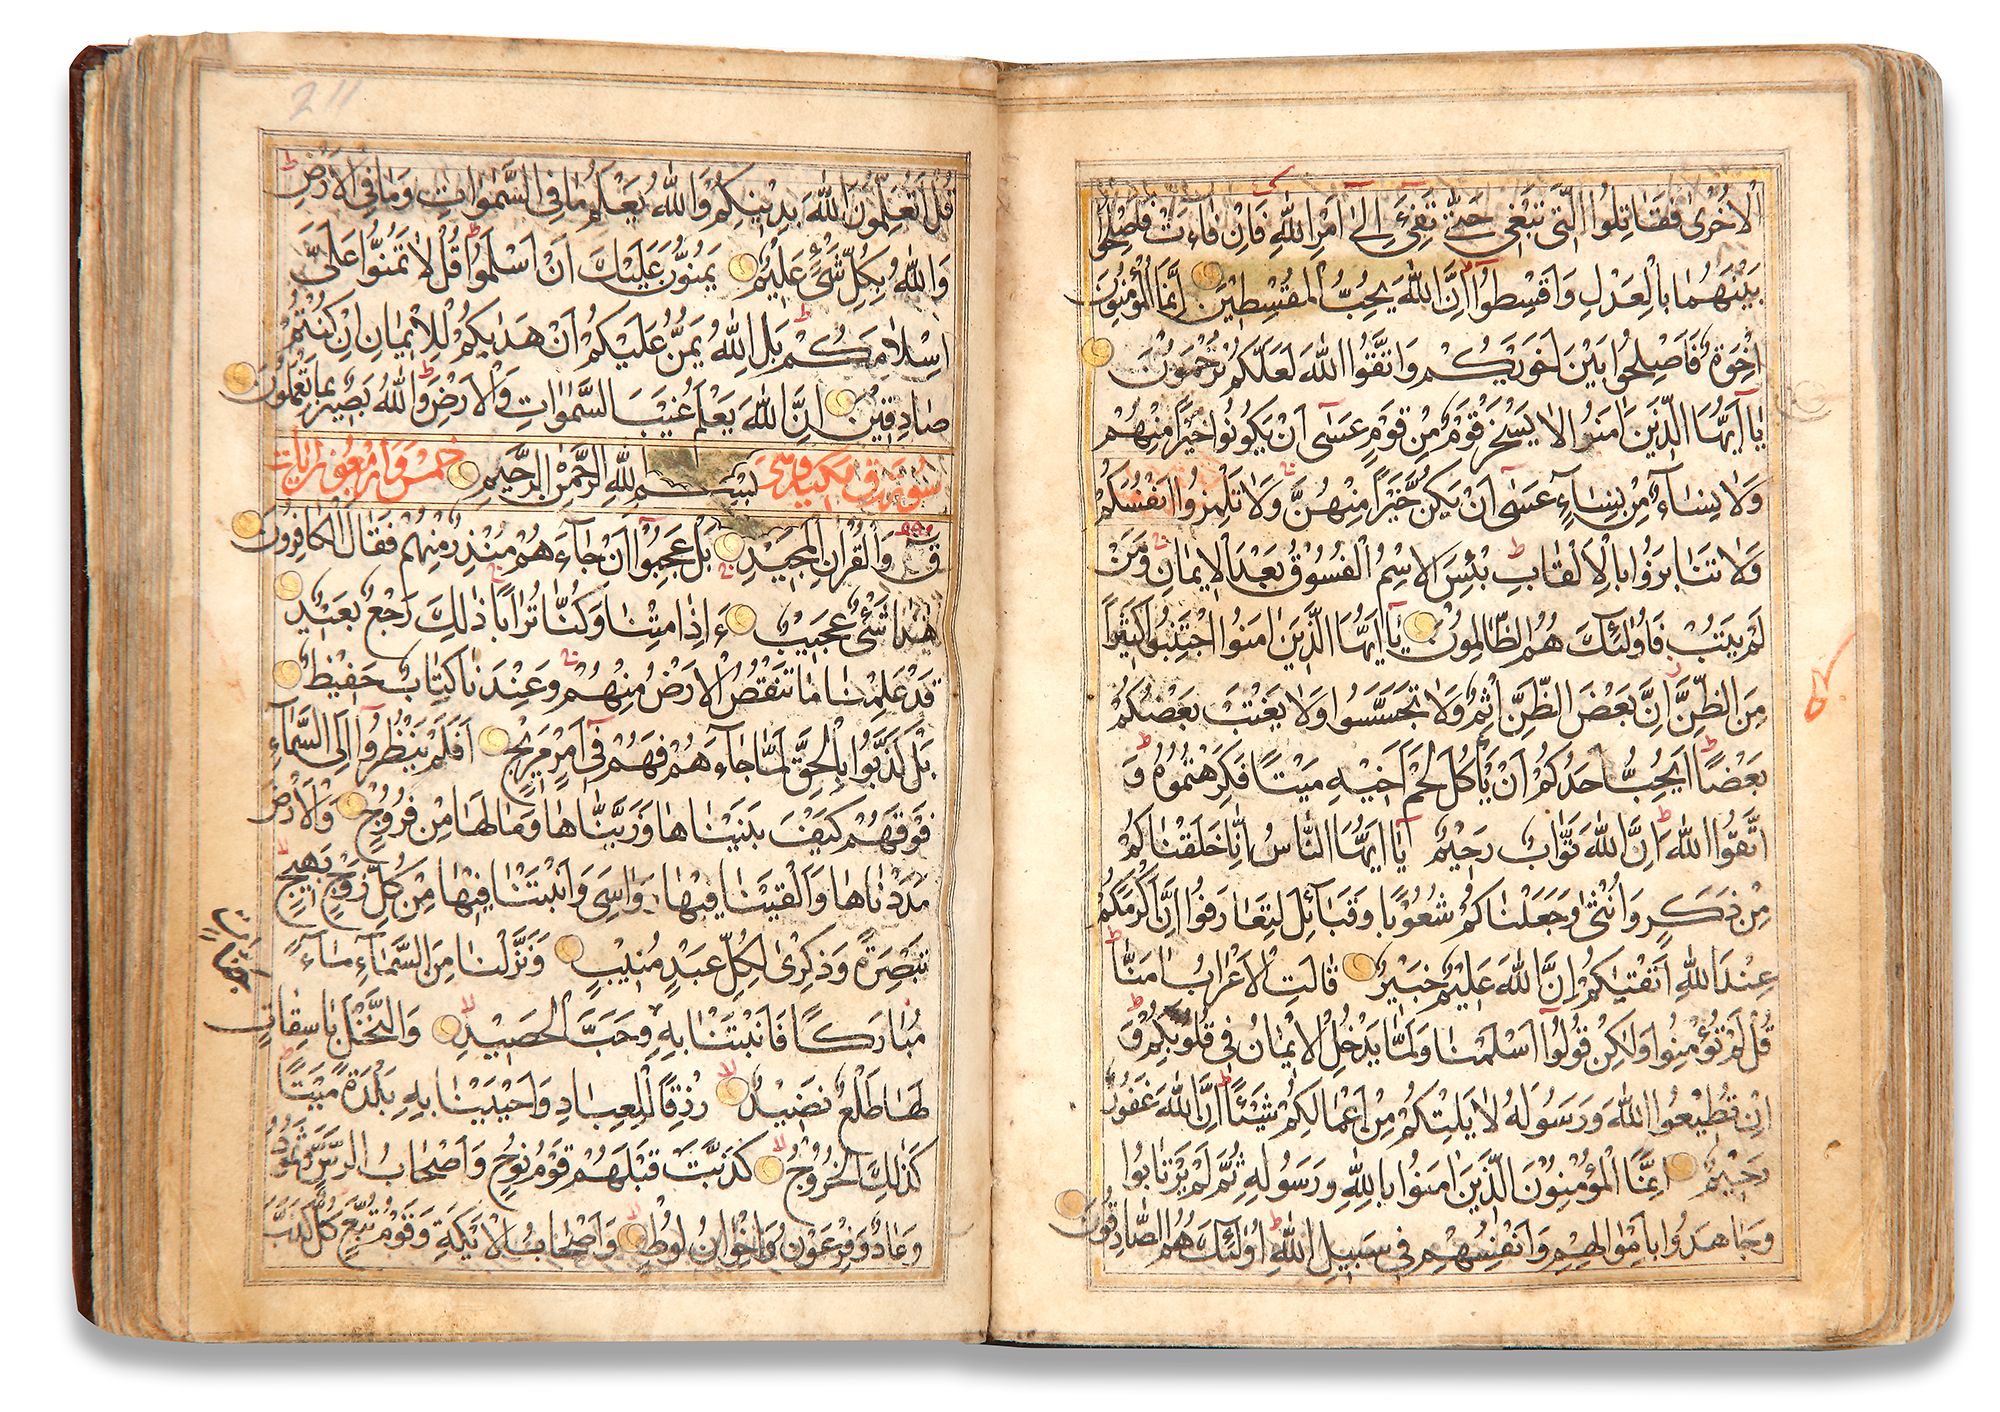 الاخرى فقاتلوا التي تبغي حتى تفيء الى امر الله فان فاءت فاصلحوا
بينهما بالعدل واقسطوا ان الله يحب المقسطين انما المؤمنون
اخوة فاصلحوا بين اخويكم واتقوا الله لعلكم ترحمون
يا ايها الذين امنوا لا يسخر قوم من قوم عسى ان يكونوا خيرا منهم
ولا نساء من نساء عسى ان يكن خيرا منهن ولا تلمزوا انفسكم
ولا تنابزوا بالالقاب بئس الاسم الفسوق بعد الايمان ومن
لم يتب فاولئك هم الظالمون يا ايها الذين امنوا اجتنبوا كثيرا
من الظن ان بعض الظن اثم ولا تجسسوا ولا يغتب بعضكم
بعضا ايحب احدكم ان ياكل لحم اخيه ميتا فكرهتموه و
اتقوا الله ان الله تواب رحيم يا ايها الناس انا خلقناكم
من ذكر وانثى وجعلناكم شعوبا وقبائل لتعارفوا ان اكرمكم
عند الله اتقيكم ان الله عليم خبير قالت الاعراب امنا
قل لم تؤمنوا ولكن قولوا اسلمنا ولما يدخل الايمان في قلوبكم و
ان تطيعوا الله ورسوله لا يلتكم من اعمالكم شيئا ان الله غفور
رحيم انما المؤمنون الذين امنوا بالله ورسوله ثم لم يرتابوا
وجاهدوا باموالهم وانفسهم في سبيل الله اولئك هم الصادقون
211
قل اتعلمون الله بدينكم والله يعلم ما في السموات وما في الارض
والله بكل شيء عليم يمنون عليك ان اسلموا قل لا تمنوا علي
اسلامكم بل الله يمن عليكم ان هديكم للايمان ان كنتم
صادقين ان الله يعلم غيب السموات والارض والله بصير بما تعملون
سورة ق مكية وهي بسم الله الرحمن الرحيم خمس واربعون ايات
ق والقران المجيد بل عجبوا ان جاءهم منذر منهم فقال الكافرون
هذا شيء عجيب ءاذا متنا وكنا ترابا ذلك رجع بعيد
قد علمنا ما تنقص الارض منهم وعندنا كتاب حفيظ
بل كذبوا بالحق لما جاءهم فهم في امر مريج افلم ينظروا الى السماء
فوقهم كيف بنيناها وزيناها وما لها من فروج والارض
مددناها والقينا فيها رواسي وانبتنا فيها من كل زوج بهيج
تبصرة وذكرى لكل عبد منيب ونزلنا من السماء ماء
مباركا فانبتنا به وحب الحصيد والنخل باسقات
لها طلع نضيد رزقا للعباد واحيينا به بلدة ميتا
كذلك الخروج كذبت قبلهم قوم نوح واصحاب الرس وثمود
وعاد وفرعون واخوان لوط واصحاب الايكة وقوم تبع كل كذب